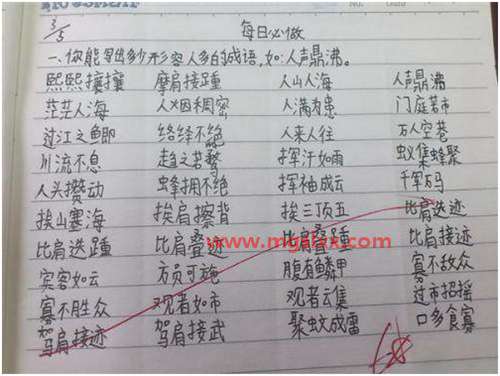 3/5 每日必做
一、你能写出多少形容人多的成语,如:人声鼎沸。
熙熙攘攘 摩肩接踵 人山人海 人声鼎沸
茫茫人海 人烟稠密 人满为患 门庭若市
过江之鲫 络绎不绝 人来人往 万人空巷
川流不息 趋之若鹜 挥汗如雨 蚁集蜂聚
人头攒动 蜂拥不绝 挥袖成云 千军万马
挨山塞海 挨肩擦背 挨三顶五 比肩迭迹
比肩迭踵 比肩叠迹 比肩叠踵 比肩接迹
宾客如云 方员可施 腹有鳞甲 寡不敌众
寡不胜众 观者如市 观者云集 过市招摇
驾肩接迹 驾肩接武 聚蚊成雷 口多食寡
www.mgalax.com